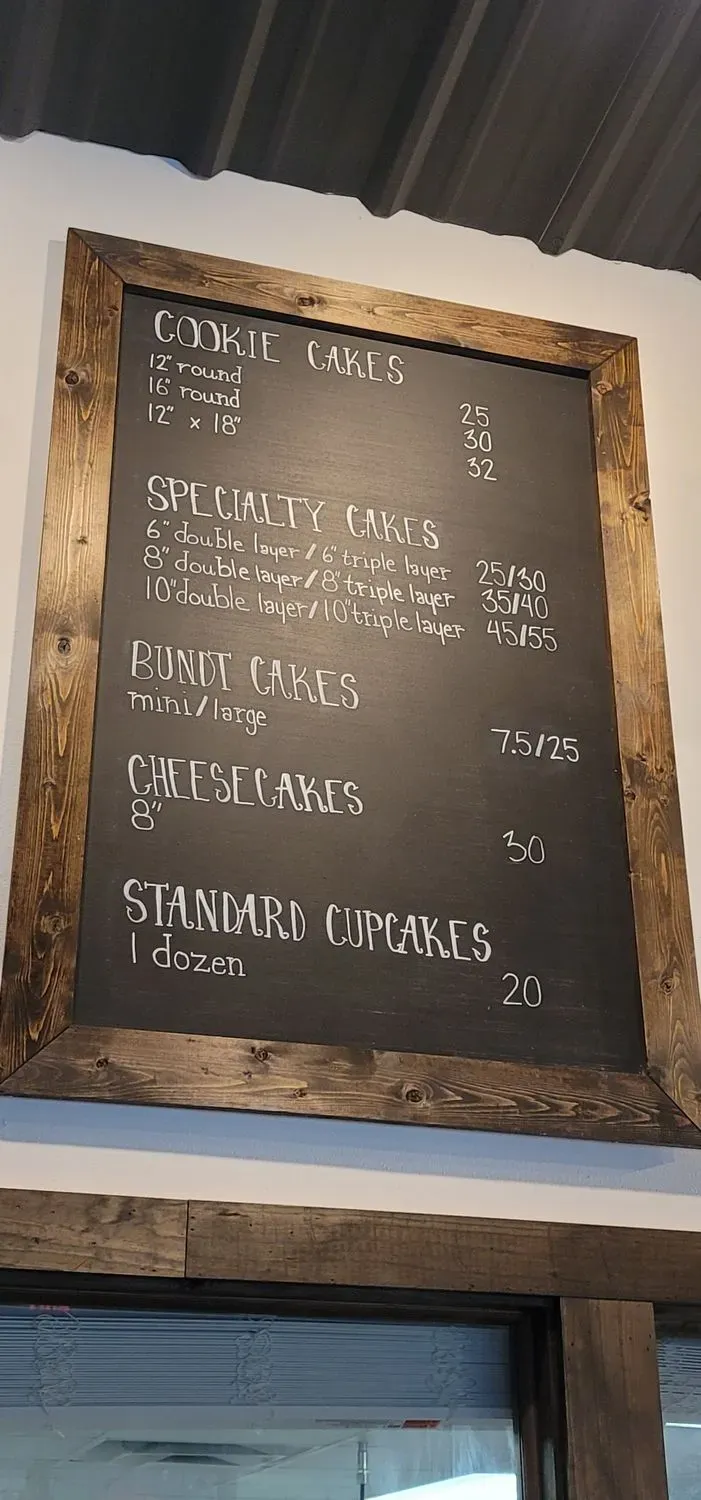 COOKIE CAKES
12" round 25
16" round 30
12" x 18" 32
SPECIALTY CAKES
6" double layer / 6" triple layer 25/30
8" double layer / 8" triple layer 35/40
10" double layer / 10" triple layer 45/55
BUNDT CAKES
mini/large 7.5/25
CHEESECAKES
8" 30
STANDARD CUPCAKES
1 dozen 20